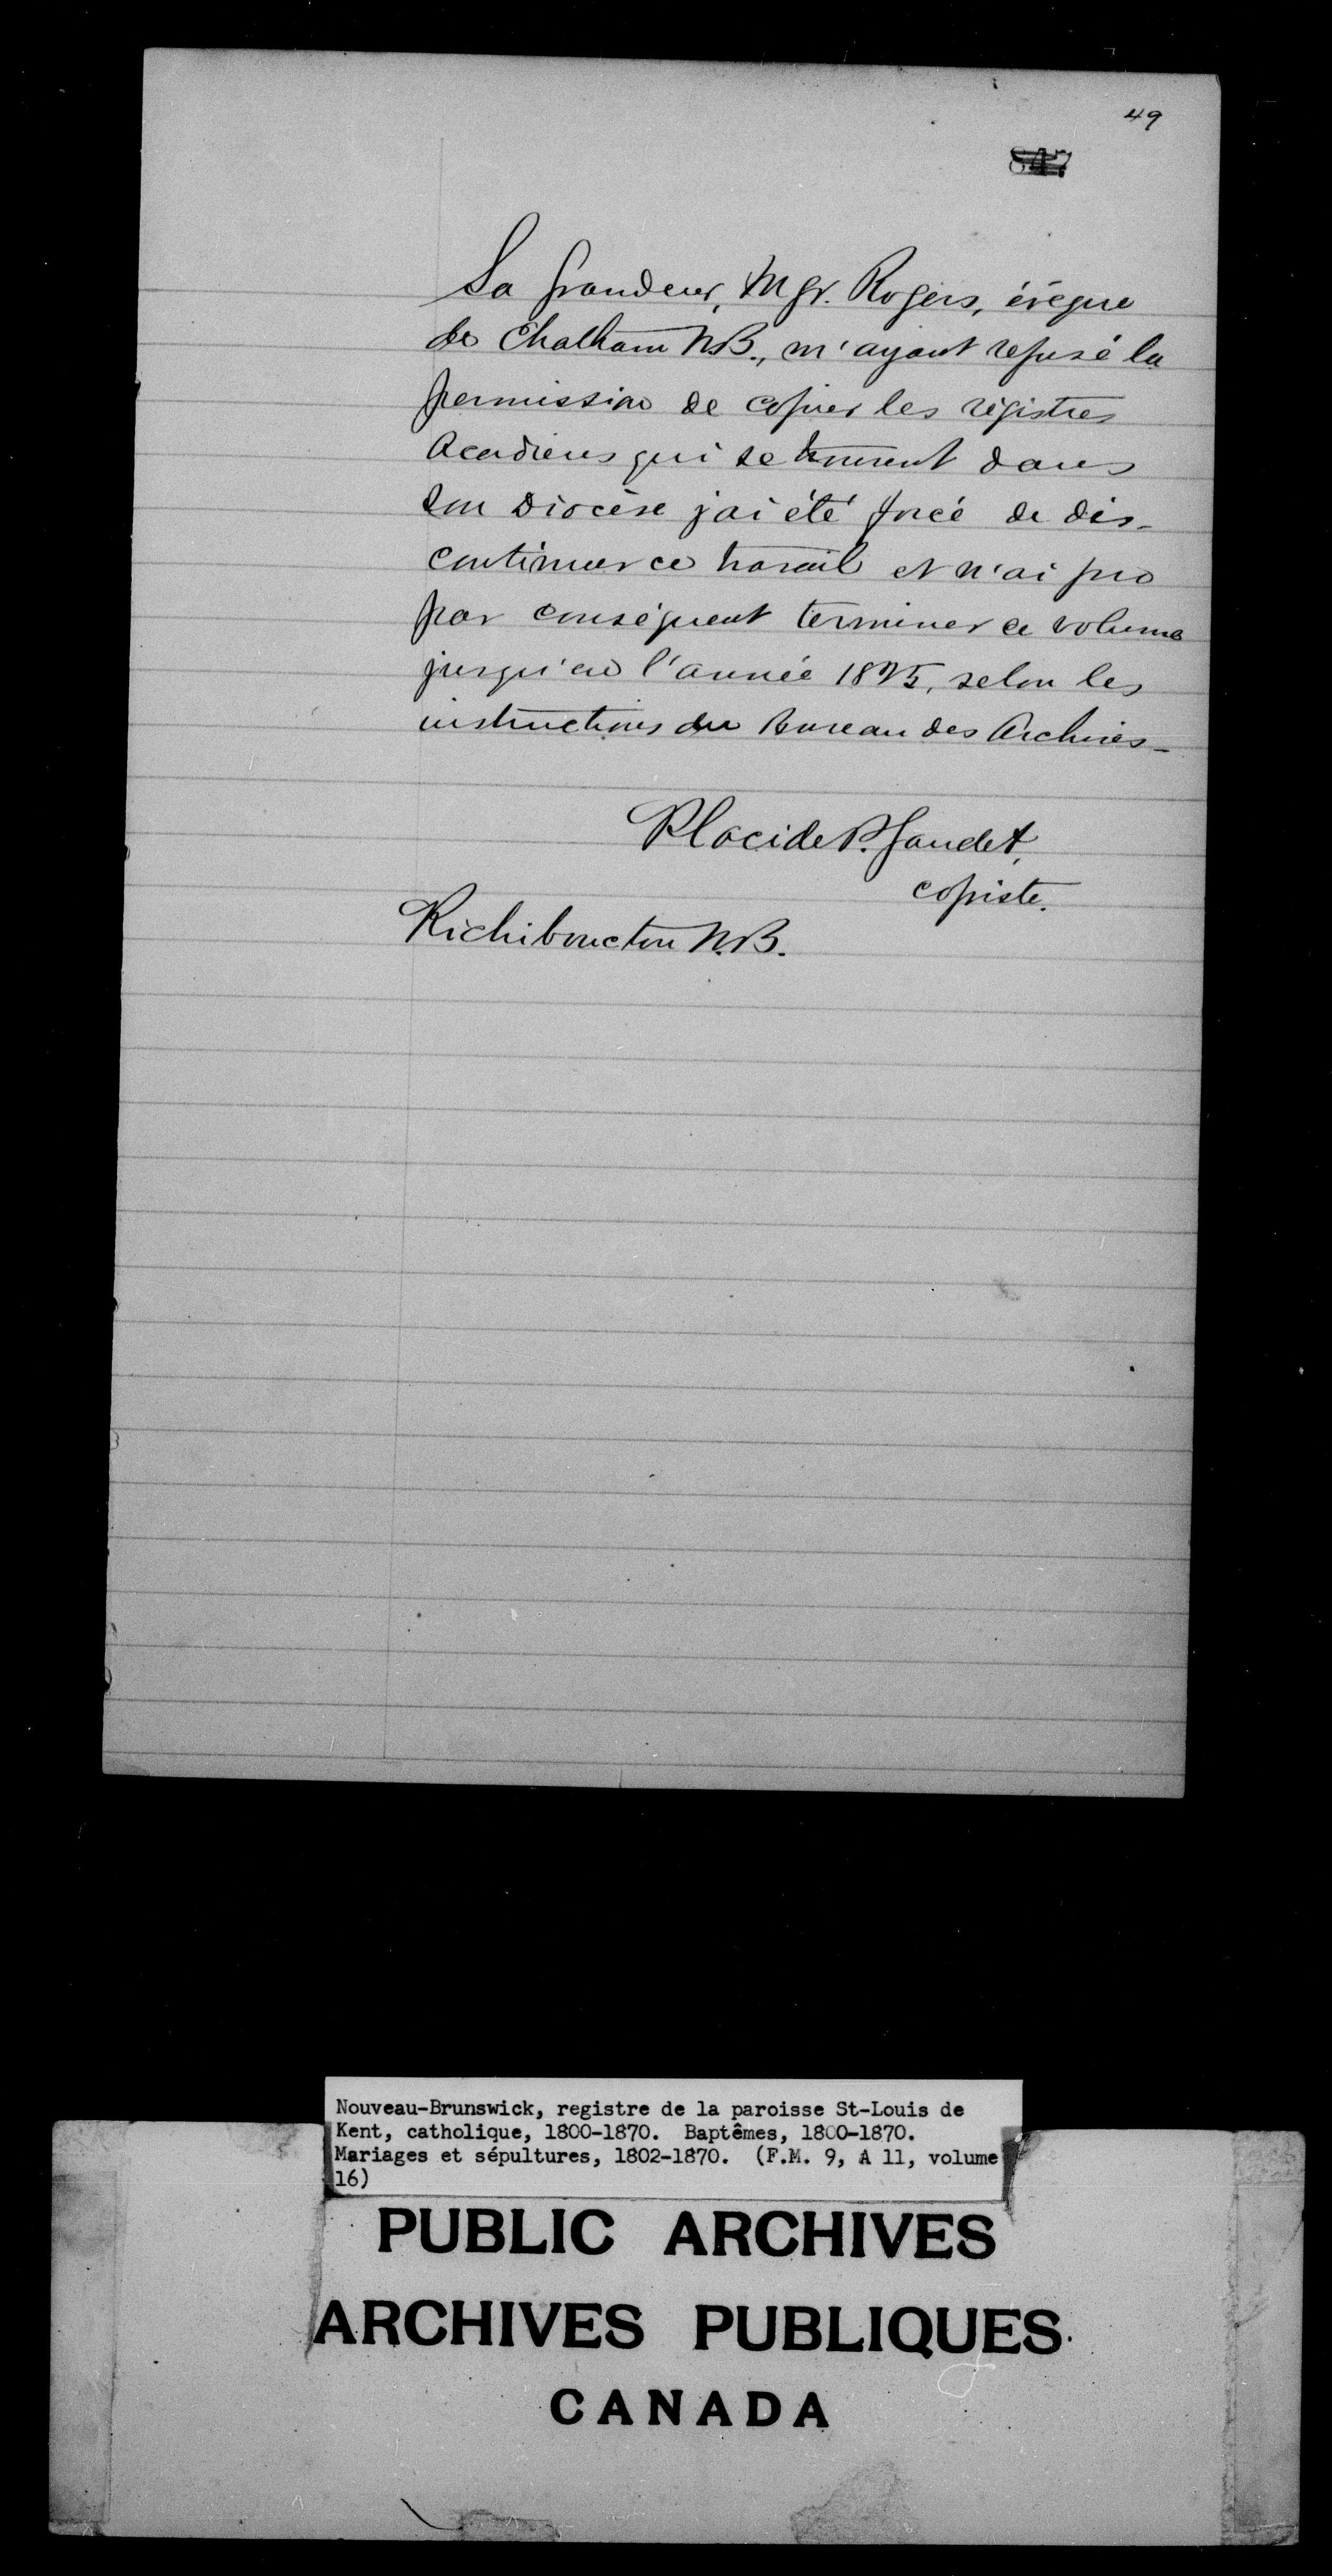 49
847
Sa Grandeur, Mgr. Rogers, évêque
de Chatham N.B., m'ayant refusé la
permission de copier les régistres
Acadiens qui se trouvent dans
son Diocèse j'ai été forcé de dis-
continuer ce travail et n'ai pu
par conséquent terminer ce volume
jusqu'en l'année 1875, selon les
instructions du Bureau des Archives-
Placide P. Gaudet,
copiste.
Richibouctou N.B.
Nouveau-Brunswick, registre de la paroisse St-Louis de
Kent, catholique, 1800-1870. Baptêmes, 1800-1870.
Mariages et sépultures, 1802-1870. (F.M. 9, A 11, volume
16)
PUBLIC ARCHIVES
ARCHIVES PUBLIQUES
CANADA